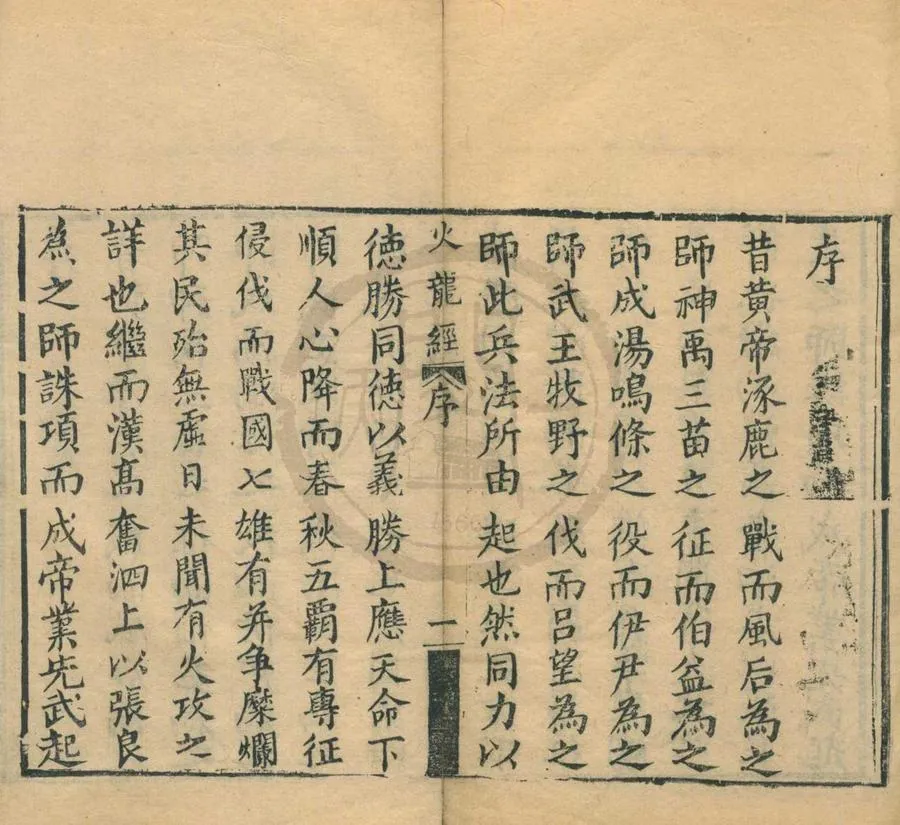 序
昔黃帝涿鹿之戰而風后為之
師神禹三苗之征而伯益為之
師成湯鳴條之役而伊尹為之
師武王牧野之伐而呂望為之
師此兵法所由起也然同力以
火龍經 序 一
德勝同德以義勝上應天命下
順人心降而春秋五霸有專征
侵伐而戰國七雄有并争糜爛
其民殆無虛日未聞有火攻之
詳也繼而漢高奮泗上以張良
為之師誅項而成帝業光武起